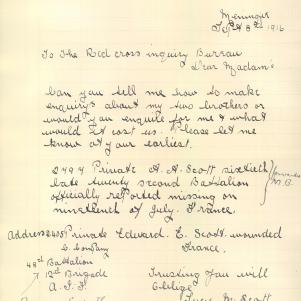 Meningie
Sept 8th 1916
To The Red cross inquiry Bureau
Dear Madam's
Can you tell me how to make
enquirys about my two brothers or
would you enquire for me & what
would it cost us. Please let me
know at your earliest.
2494 Private A. A. Scott sixtieth
late twenty second Battalion
officially reported missing on
nineteenth of July. France.
Address 2405 Private Edward. E. Scott. wounded
C. Company France.
48th Battalion
12th Brigade Trusting you will
A. I. F Oblige
Scott